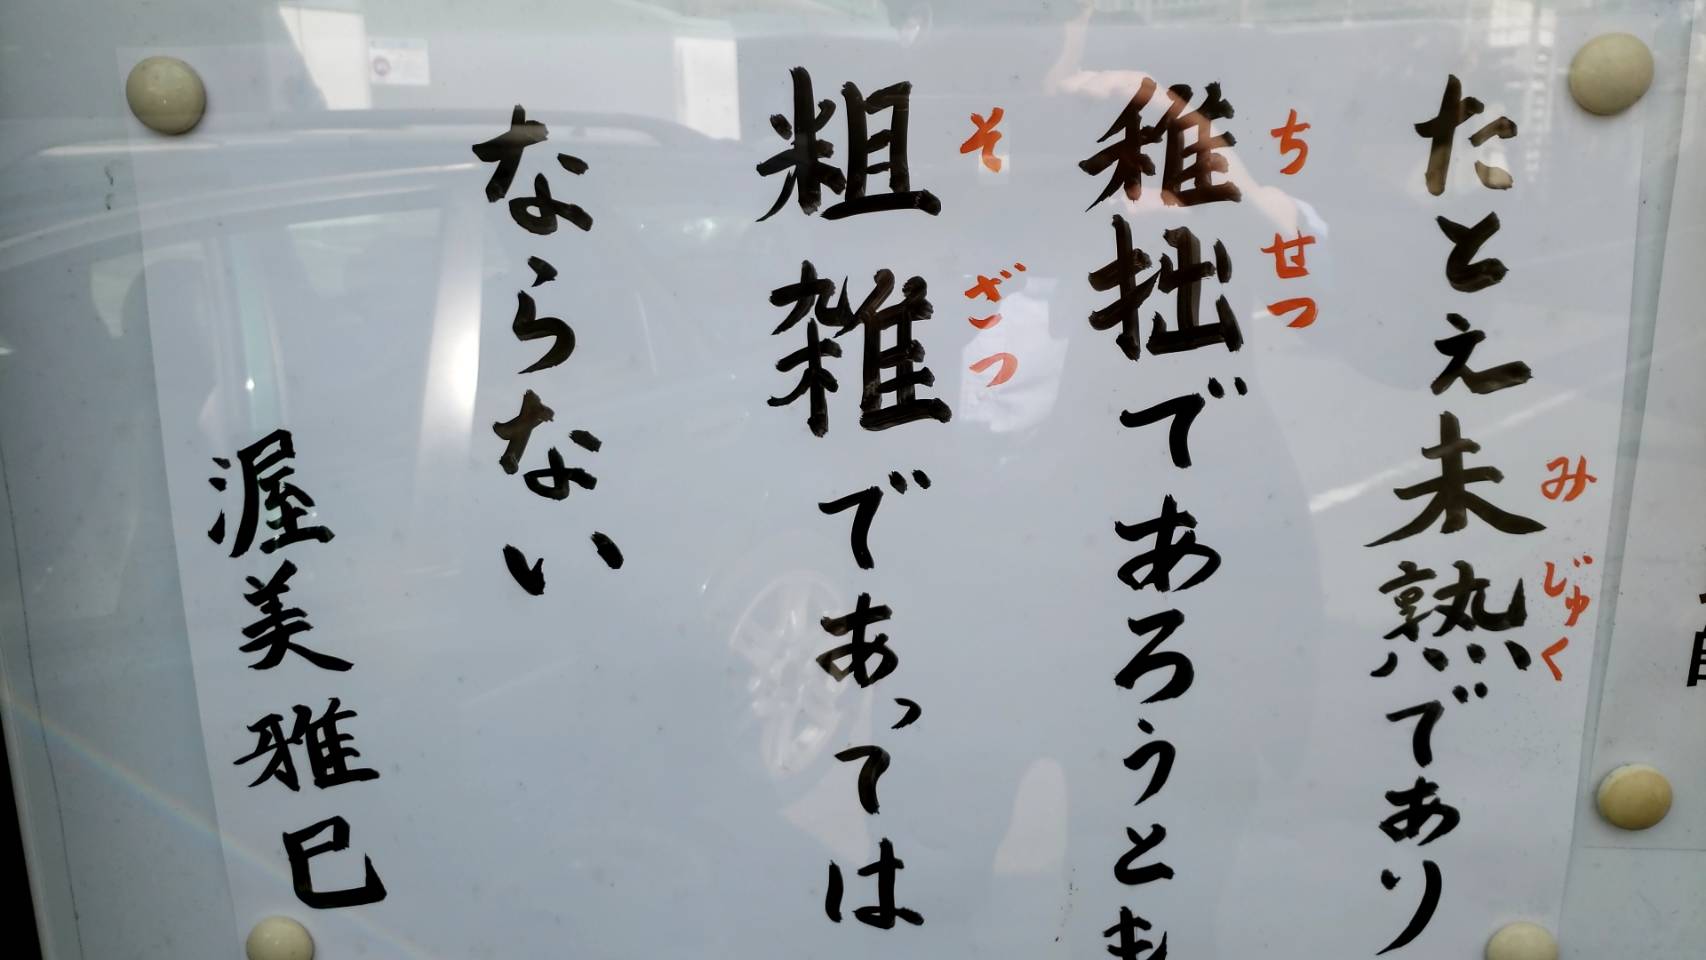 たとえ未熟であり
みじゅく
稚拙であろうとも
ちせつ
粗雑であっては
そざつ
ならない
渥美雅巳